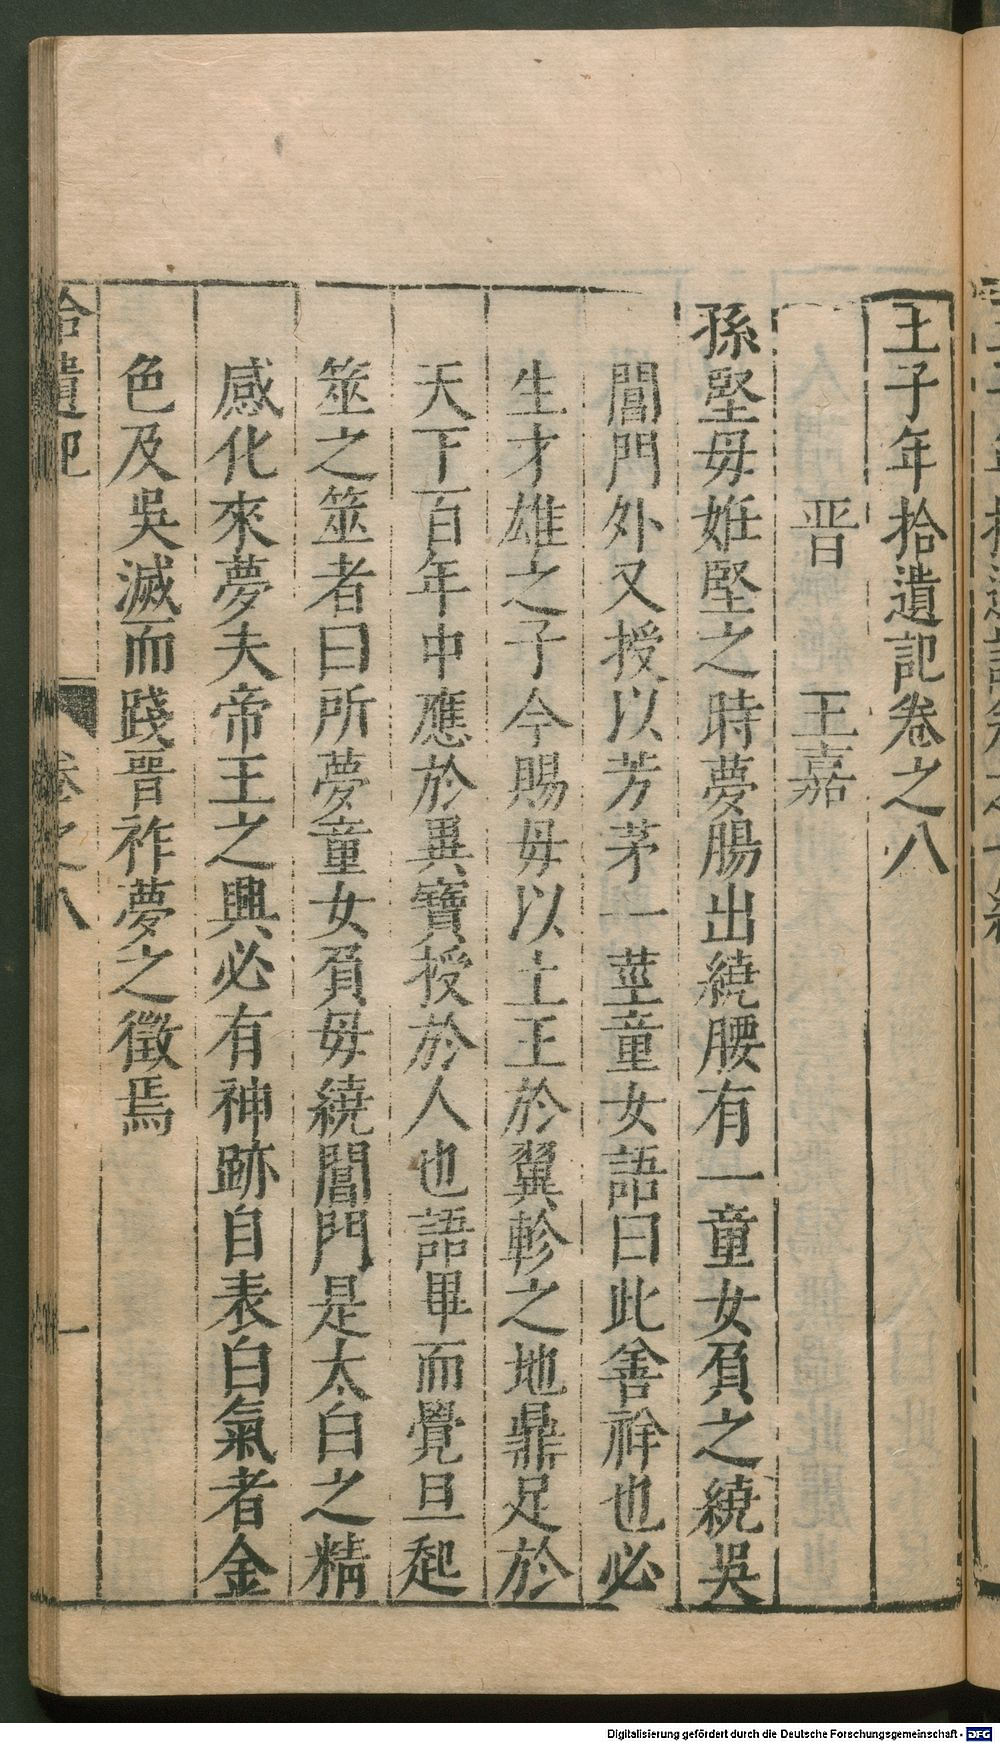 王子年拾遺記卷之八
晋　王嘉
孫堅母妊堅之時夢腸出繞腰有一童女負之繞吳
閶門外又授以芳茅一莖童女語曰此善祥也必
生才雄之子今賜母以土王於翼軫之地鼎足於
天下百年中應於異寶授於人也語畢而覺旦起
筮之筮者曰所夢童女負母繞閶門是太白之精
感化來夢夫帝王之興必有神跡自表白氣者金
色及吳滅而踐晋祚夢之徵焉
拾遺記　卷之八　一
Digitalisierung gefördert durch die Deutsche Forschungsgemeinschaft - DFG